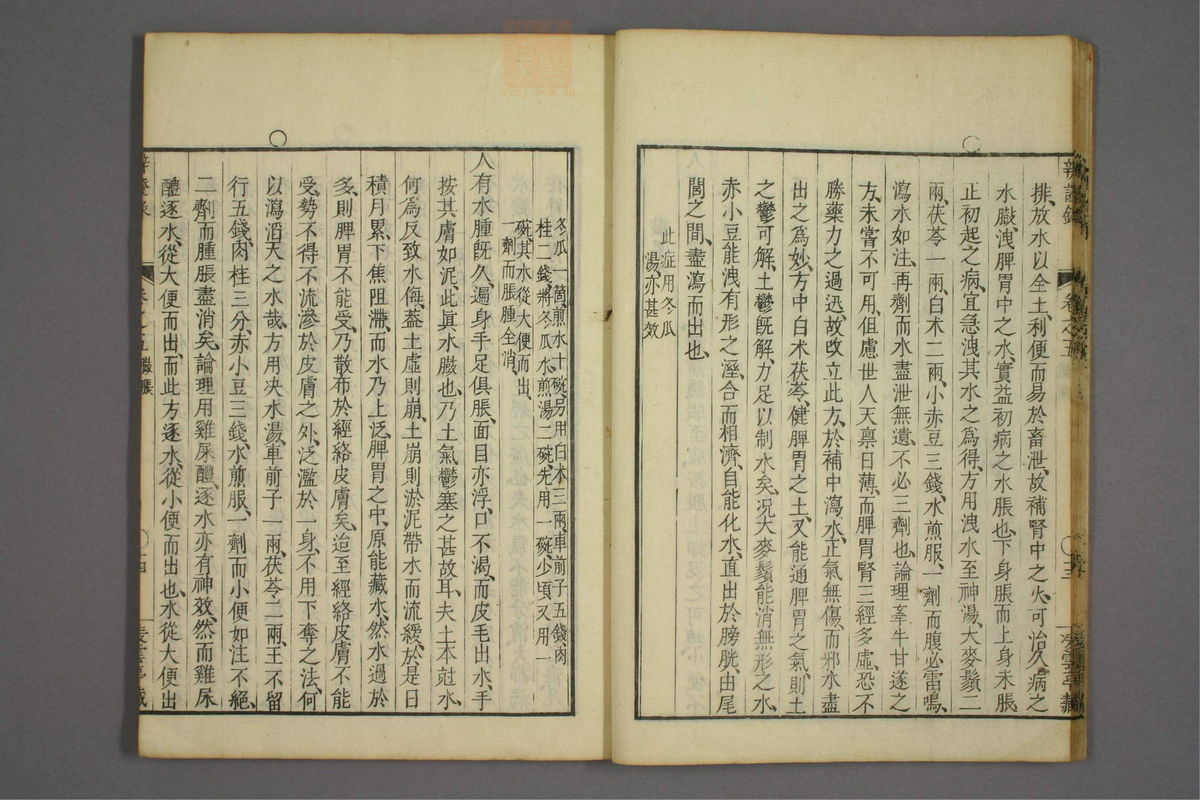 辨証錄 卷之五 十三 凌雲亭藏
排、放水以全土、利便而易於畜泄、故補腎中之火、可治久病之
水臌、洩脾胃中之水、實益初病之水脹也、下身脹而上身未脹
正初起之病、宜急洩其水之爲得、方用洩水至神湯、大麥鬚二
兩、茯苓一兩、白朮二兩、小赤豆三錢、水煎服、一劑而腹必雷鳴、
瀉水如注、再劑而水盡泄無遺、不必三劑也、論理牽牛甘遂之
方、未嘗不可用、但慮世人天禀日薄、而脾胃腎三經多虛、恐不
勝藥力之過迅、故攺立此方、於補中瀉水、正氣無傷、而邪水盡
出之爲妙、方中白朮茯苓、健脾胃之土、又能通脾胃之氣、則土
之鬱可解、土鬱旣解、力足以制水矣、况大麥鬚能消無形之水、
赤小豆能洩有形之溼、合而相濟、自能化水、直出於膀胱、由尾
閭之間、盡瀉而出也、
此症用冬瓜
湯亦甚效
冬瓜一箇、煎水十碗、另用白朮三兩、車前子五錢、肉
桂二錢、將冬瓜水煎湯二碗、先用一碗、少頃又用一
碗、其水從大便而出、
一劑而脹腫全消、
人有水腫旣久、遍身手足俱脹、面目亦浮、口不渴而皮毛出水、手
按其膚如泥、此眞水臌也、乃土氣鬱塞之甚故耳、夫土本尅水、
何爲反致水侮、葢土虛則崩、土崩則淤泥帶水而流緩、於是日
積月累、下焦阻滯、而水乃上泛、脾胃之中、原能藏水、然水過於
多、則脾胃不能受、乃散布於經絡皮膚矣、迨至經絡皮膚不能
受、勢不得不流滲於皮膚之外、泛濫於一身、不用下奪之法、何
以瀉滔天之水哉、方用决水湯、車前子一兩、茯苓二兩、王不留
行五錢、肉桂三分、赤小豆三錢、水煎服、一劑而小便如注不絕、
二劑而腫脹盡消矣、論理用雞屎醴、逐水亦有神效、然而雞屎
醴逐水、從大便而出、而此方逐水、從小便而出也、水從大便出